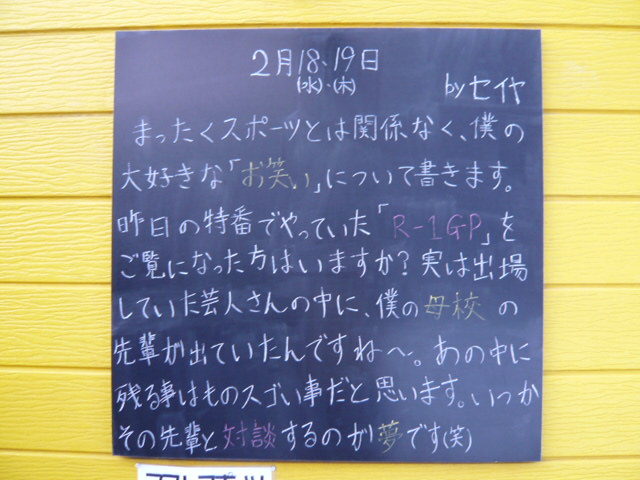 2月18、19日
(水)、(木)
byセイヤ
まったくスポーツとは関係なく、僕の
大好きな「お笑い」について書きます。
昨日の特番でやっていた「R-1GP」を
ご覧になった方はいますか？実は出場
していた芸人さんの中に、僕の母校の
先輩が出ていたんですね〜。あの中に
残る事はものスゴい事だと思います。いつか
その先輩と対談するのが夢です(笑)